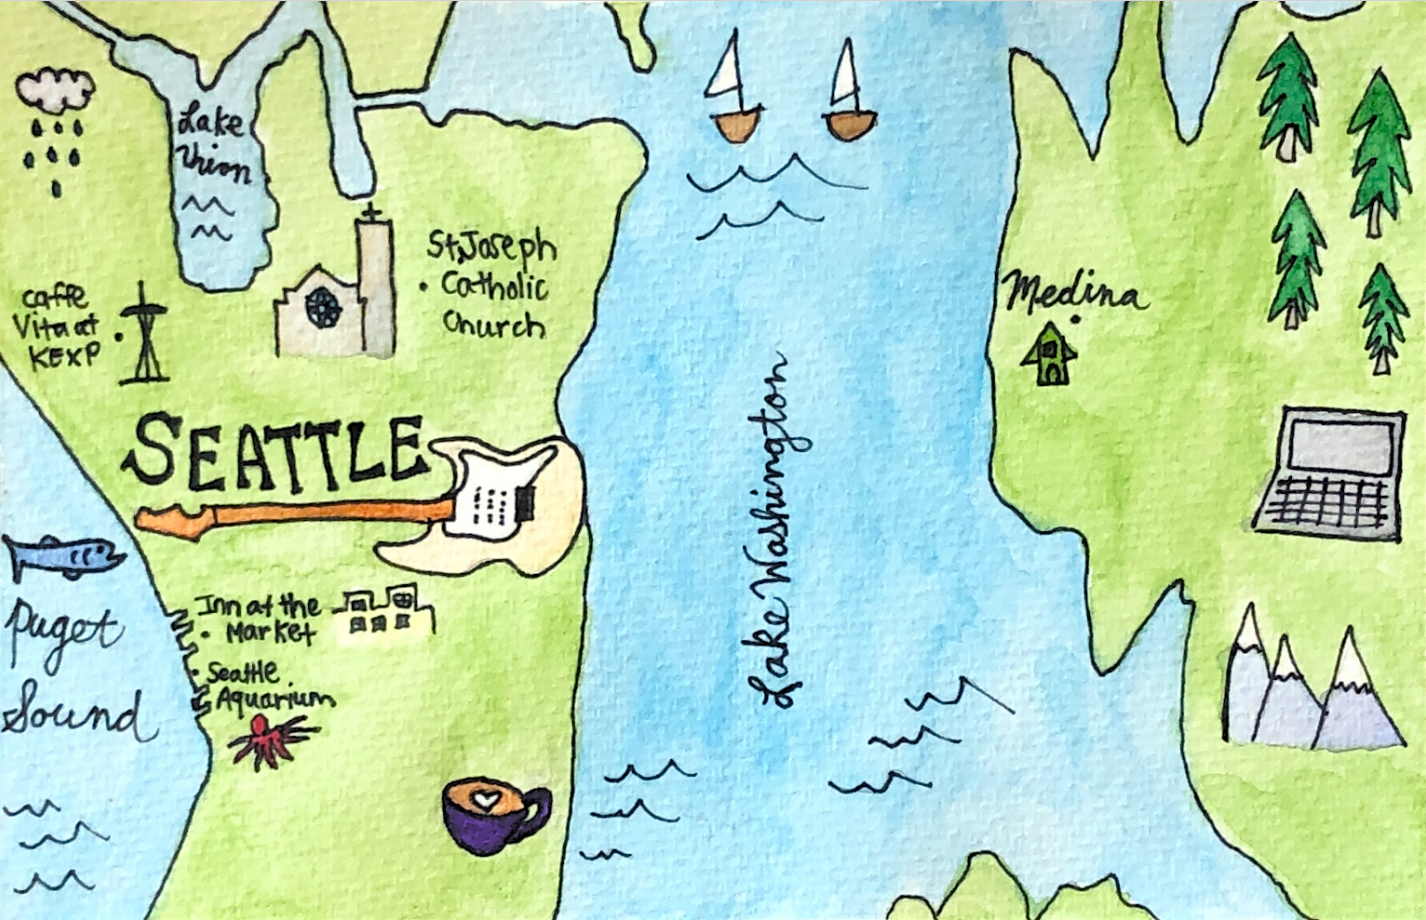 Lake
Union
St. Joseph
Catholic
Church
Caffe
Vita at
KEXP
Medina
SEATTLE
Lake Washington
Inn at the
Market
Seattle
Aquarium
Puget
Sound